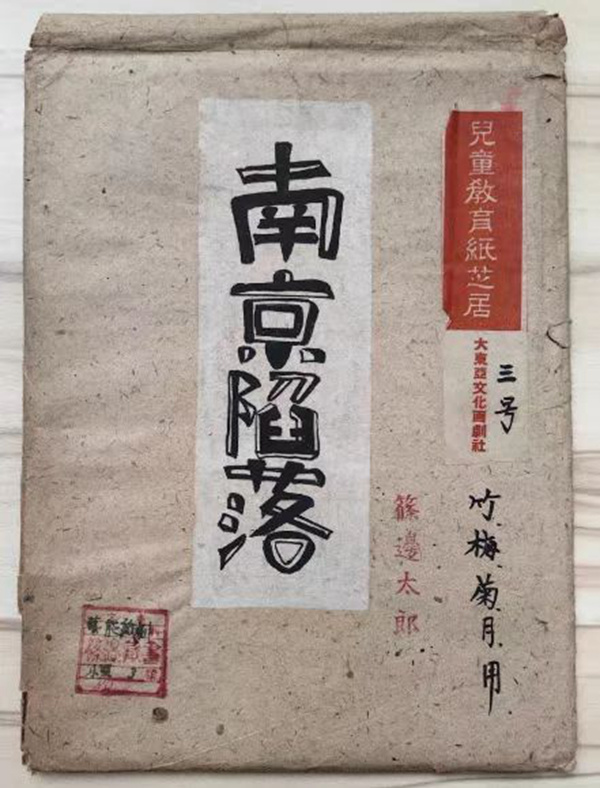 兒童教育紙芝居
大東亞文化画劇社
三号
竹.梅.菊.月.用
南京陷落
篠邊太郎